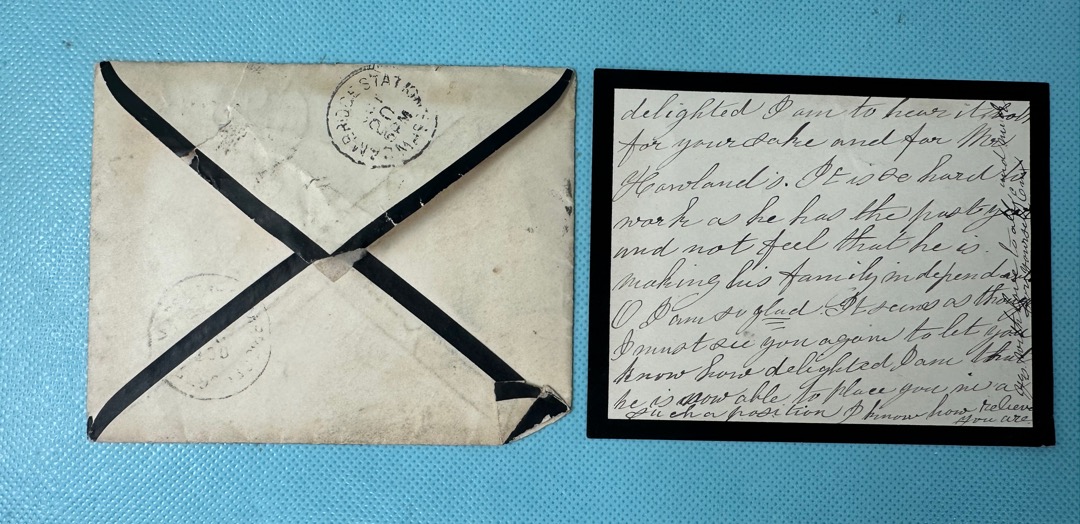 CAMBRIDGE STATION
delighted I am to hear it both
for your sake and for Mr
Howland's. It is so hard to
work as he has the past y
and not feel that he is
making his family independ
O I am so glad. It seems as though
I must see you again to let you
know how delighted I am that
he is now able to place you in a
such a position I know how relieved
you are.
with love to all